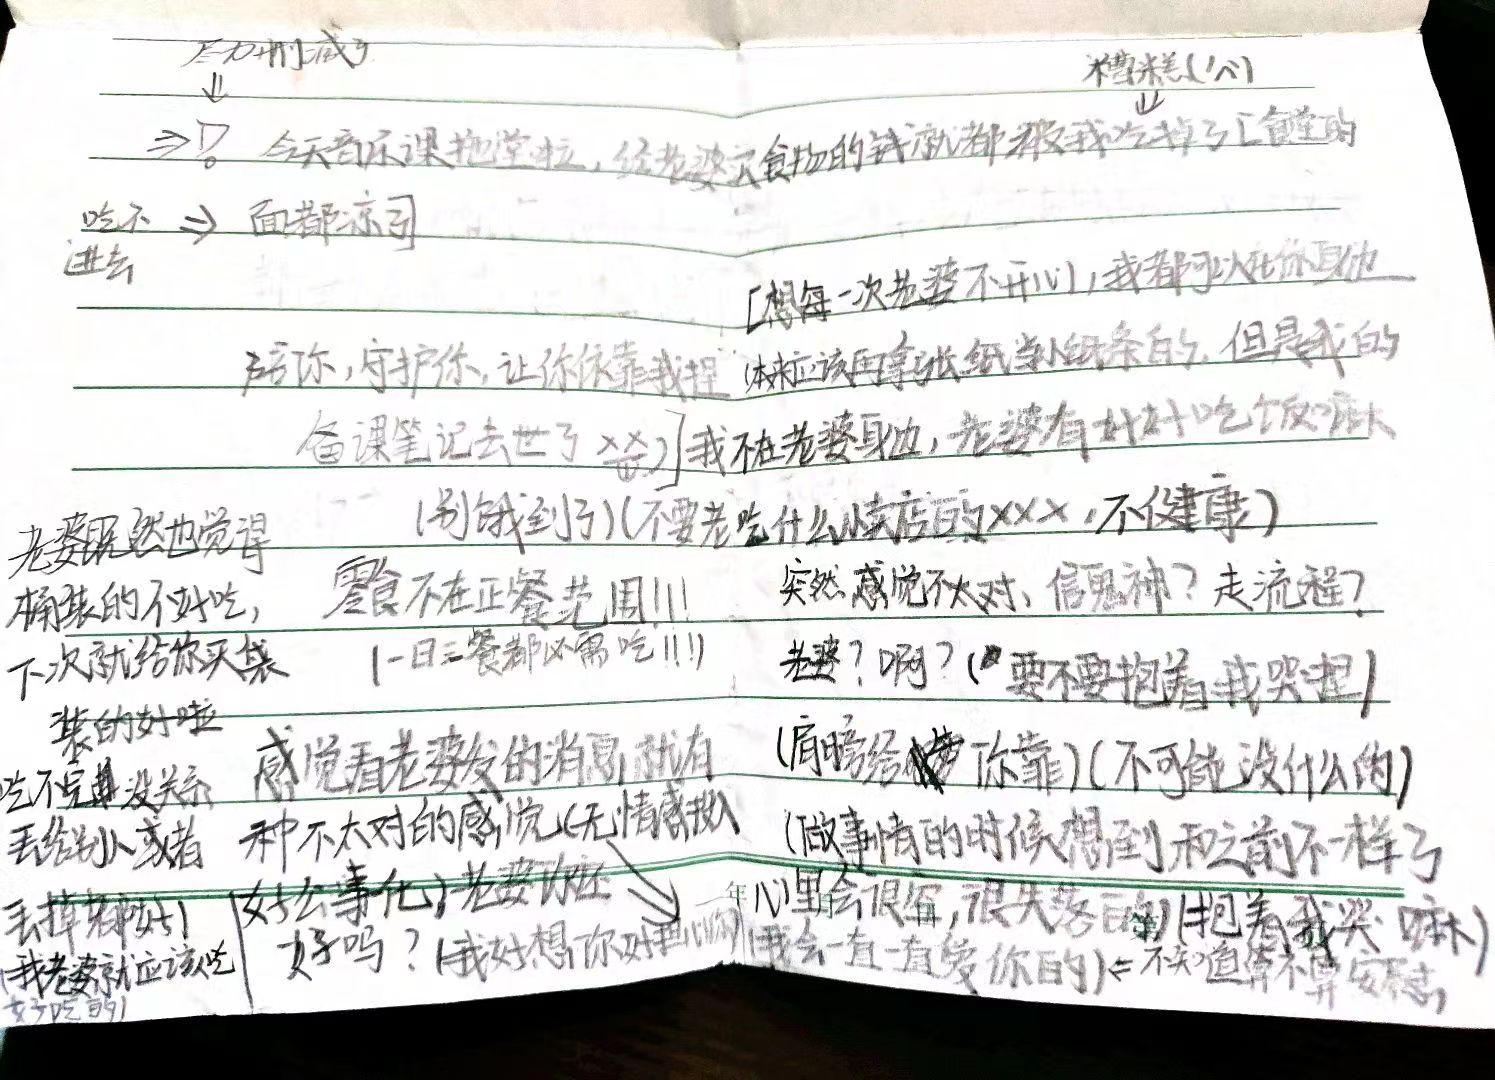 糟糕(心)
⇒ 今天音乐课拖堂啦，给老婆买食物的钱就都被我吃掉了[食堂的
吃不进去 ⇒ 面都凉了]
[想每一次老婆不开心，我都可以在你身边
陪你，守护你，让你依靠我捏(本来应该再拿张纸当小纸条的，但是我的
备课笔记去世了xx)]我不在老婆身边，老婆有好好吃饭嘛
(别饿到了)(不要老吃什么小卖店的xxx，不健康)
零食不在正餐范围!!!
(一日三餐都必需吃!!!)
老婆既然也觉得
桶装的不好吃，
下次就给你买袋
装的好啦
吃不完没关系
丢给别人或者
丢掉都好
(我老婆就应该吃
好吃的)
感觉看老婆发的消息，就有
种不太对的感觉(无情感
好公事化)老婆你还
好吗？(我好想你
突然感觉不太对，信鬼神？走流程？
老婆？啊？(要不要抱着我哭捏)
(肩膀给你靠)(不可能没什么的)
(做事情的时候想到和之前不一样了
心里会很，很失落的)(抱着我哭嘛)
(我会一直一直爱你的)⇐不知道算不算安慰
年
第